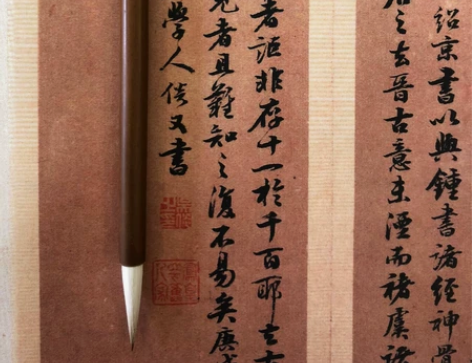 紹京書以與鍾書諸經神骨
之去晉古意未湮而褚虞諸
者詎非存十一於千百耶去古
者且難知之復不易矣庚
學人倓又書